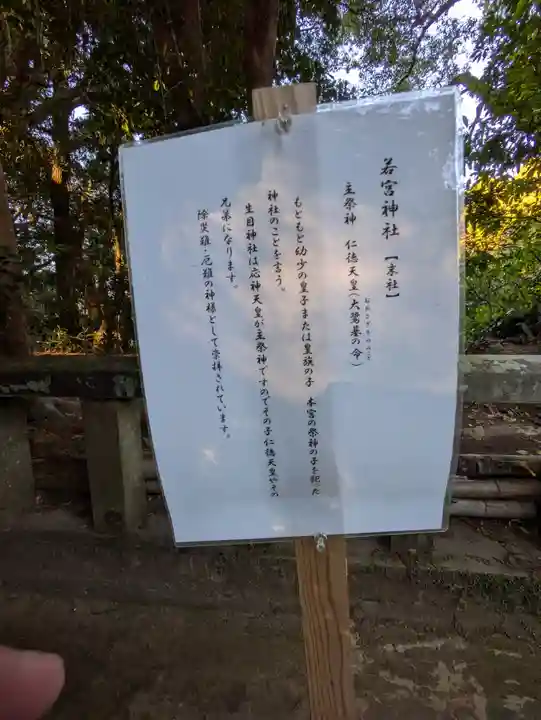 若宮神社 【末社】
主祭神 仁徳天皇(大鷺基の命)
おおさざきのみこと
もともと幼少の皇子または皇族の子 本宮の祭神の子を祀った
神社のことを言う。
生目神社は応神天皇が主祭神ですのでその子仁徳天皇やその
兄弟になります。
除災難・厄難の神様として崇拝されています。